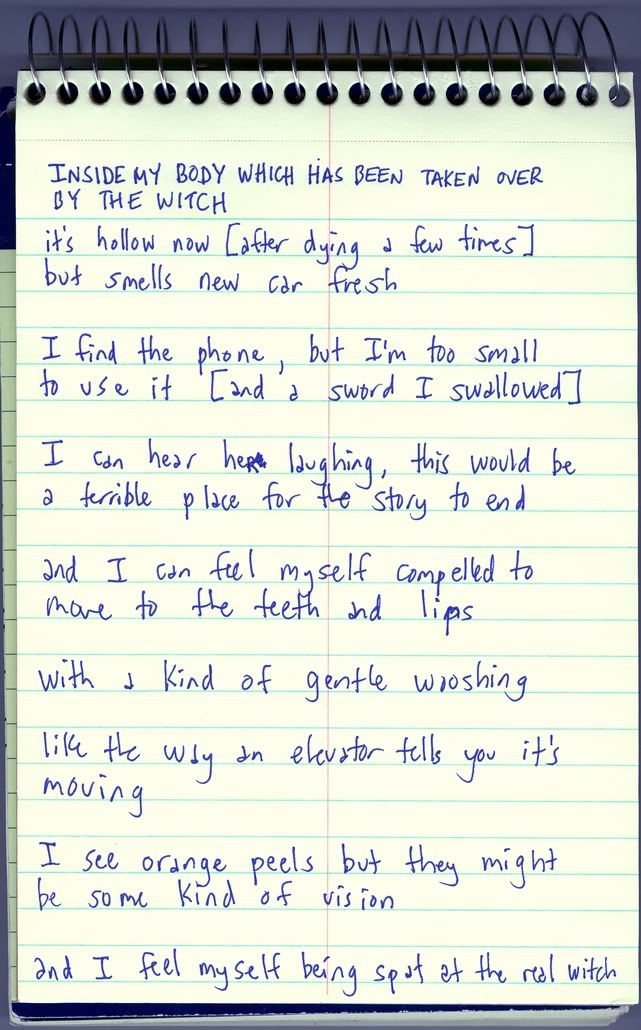 INSIDE MY BODY WHICH HAS BEEN TAKEN OVER
BY THE WITCH
it's hollow now [after dying a few times]
but smells new car fresh
I find the phone, but I'm too small
to use it [and a sword I swallowed]
I can hear her laughing, this would be
a terrible place for the story to end
and I can feel myself compelled to
move to the teeth and lips
with a kind of gentle wooshing
like the way an elevator tells you it's
moving
I see orange peels but they might
be some kind of vision
and I feel myself being spat at the real witch